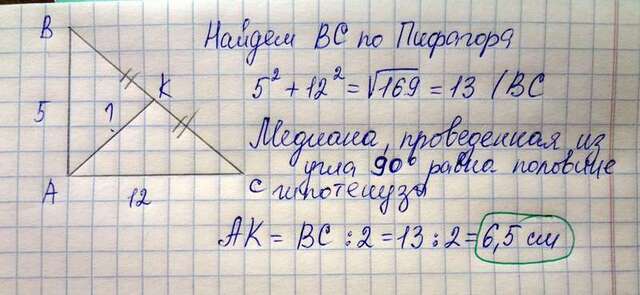 Найдем BC по Пифагора
B
5² + 12² = √169 = 13 /BC
K
5
?
Медиана, проведенная из
угла 90° равна половине
A
12
C
гипотенузы
AK = BC : 2 = 13 : 2 = 6,5 см